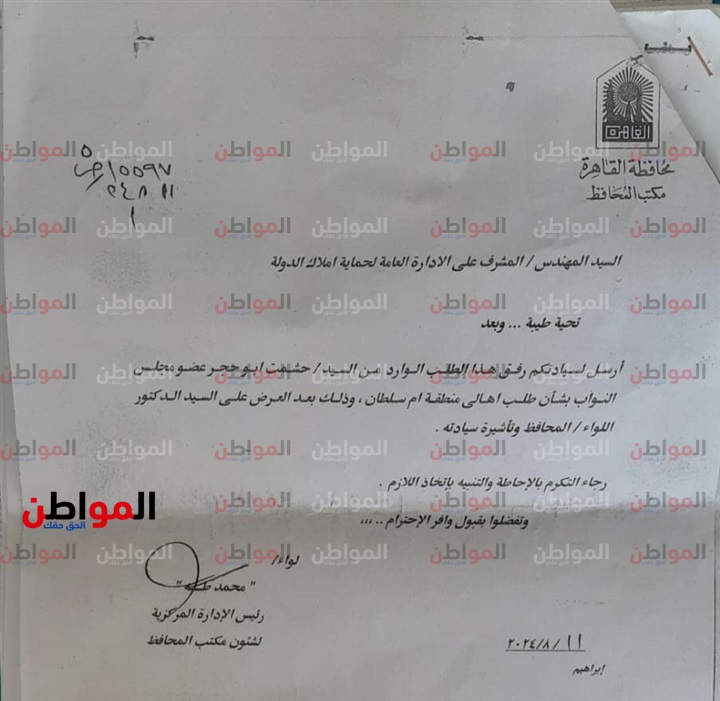 القاهرة
محافظة القاهرة
مكتب المحافظ
١٥٥٩٧
٢٤ ٨ ١١
١
السيد المهندس / المشرف على الادارة العامة لحماية املاك الدولة
تحية طيبة ... وبعد
أرسل لسيادتكم رفق هذا الطلب الوارد من السيد / حشمت ابو حجر عضو مجلس
النواب بشأن طلب اهالى منطقة ام سلطان ، وذلك بعد العرض على السيد الدكتور
اللواء / المحافظ وتأشيرة سيادته .
رجاء التكرم بالإحاطة والتنبيه بإتخاذ اللازم .
وتفضلوا بقبول وافر الإحترام .. ,,,
لواء/
" محمد طـه "
رئيس الإدارة المركزية
لشئون مكتب المحافظ
١١ / ٨/ ٢٠٢٤
إبراهيم
المواطن
الحق حقك